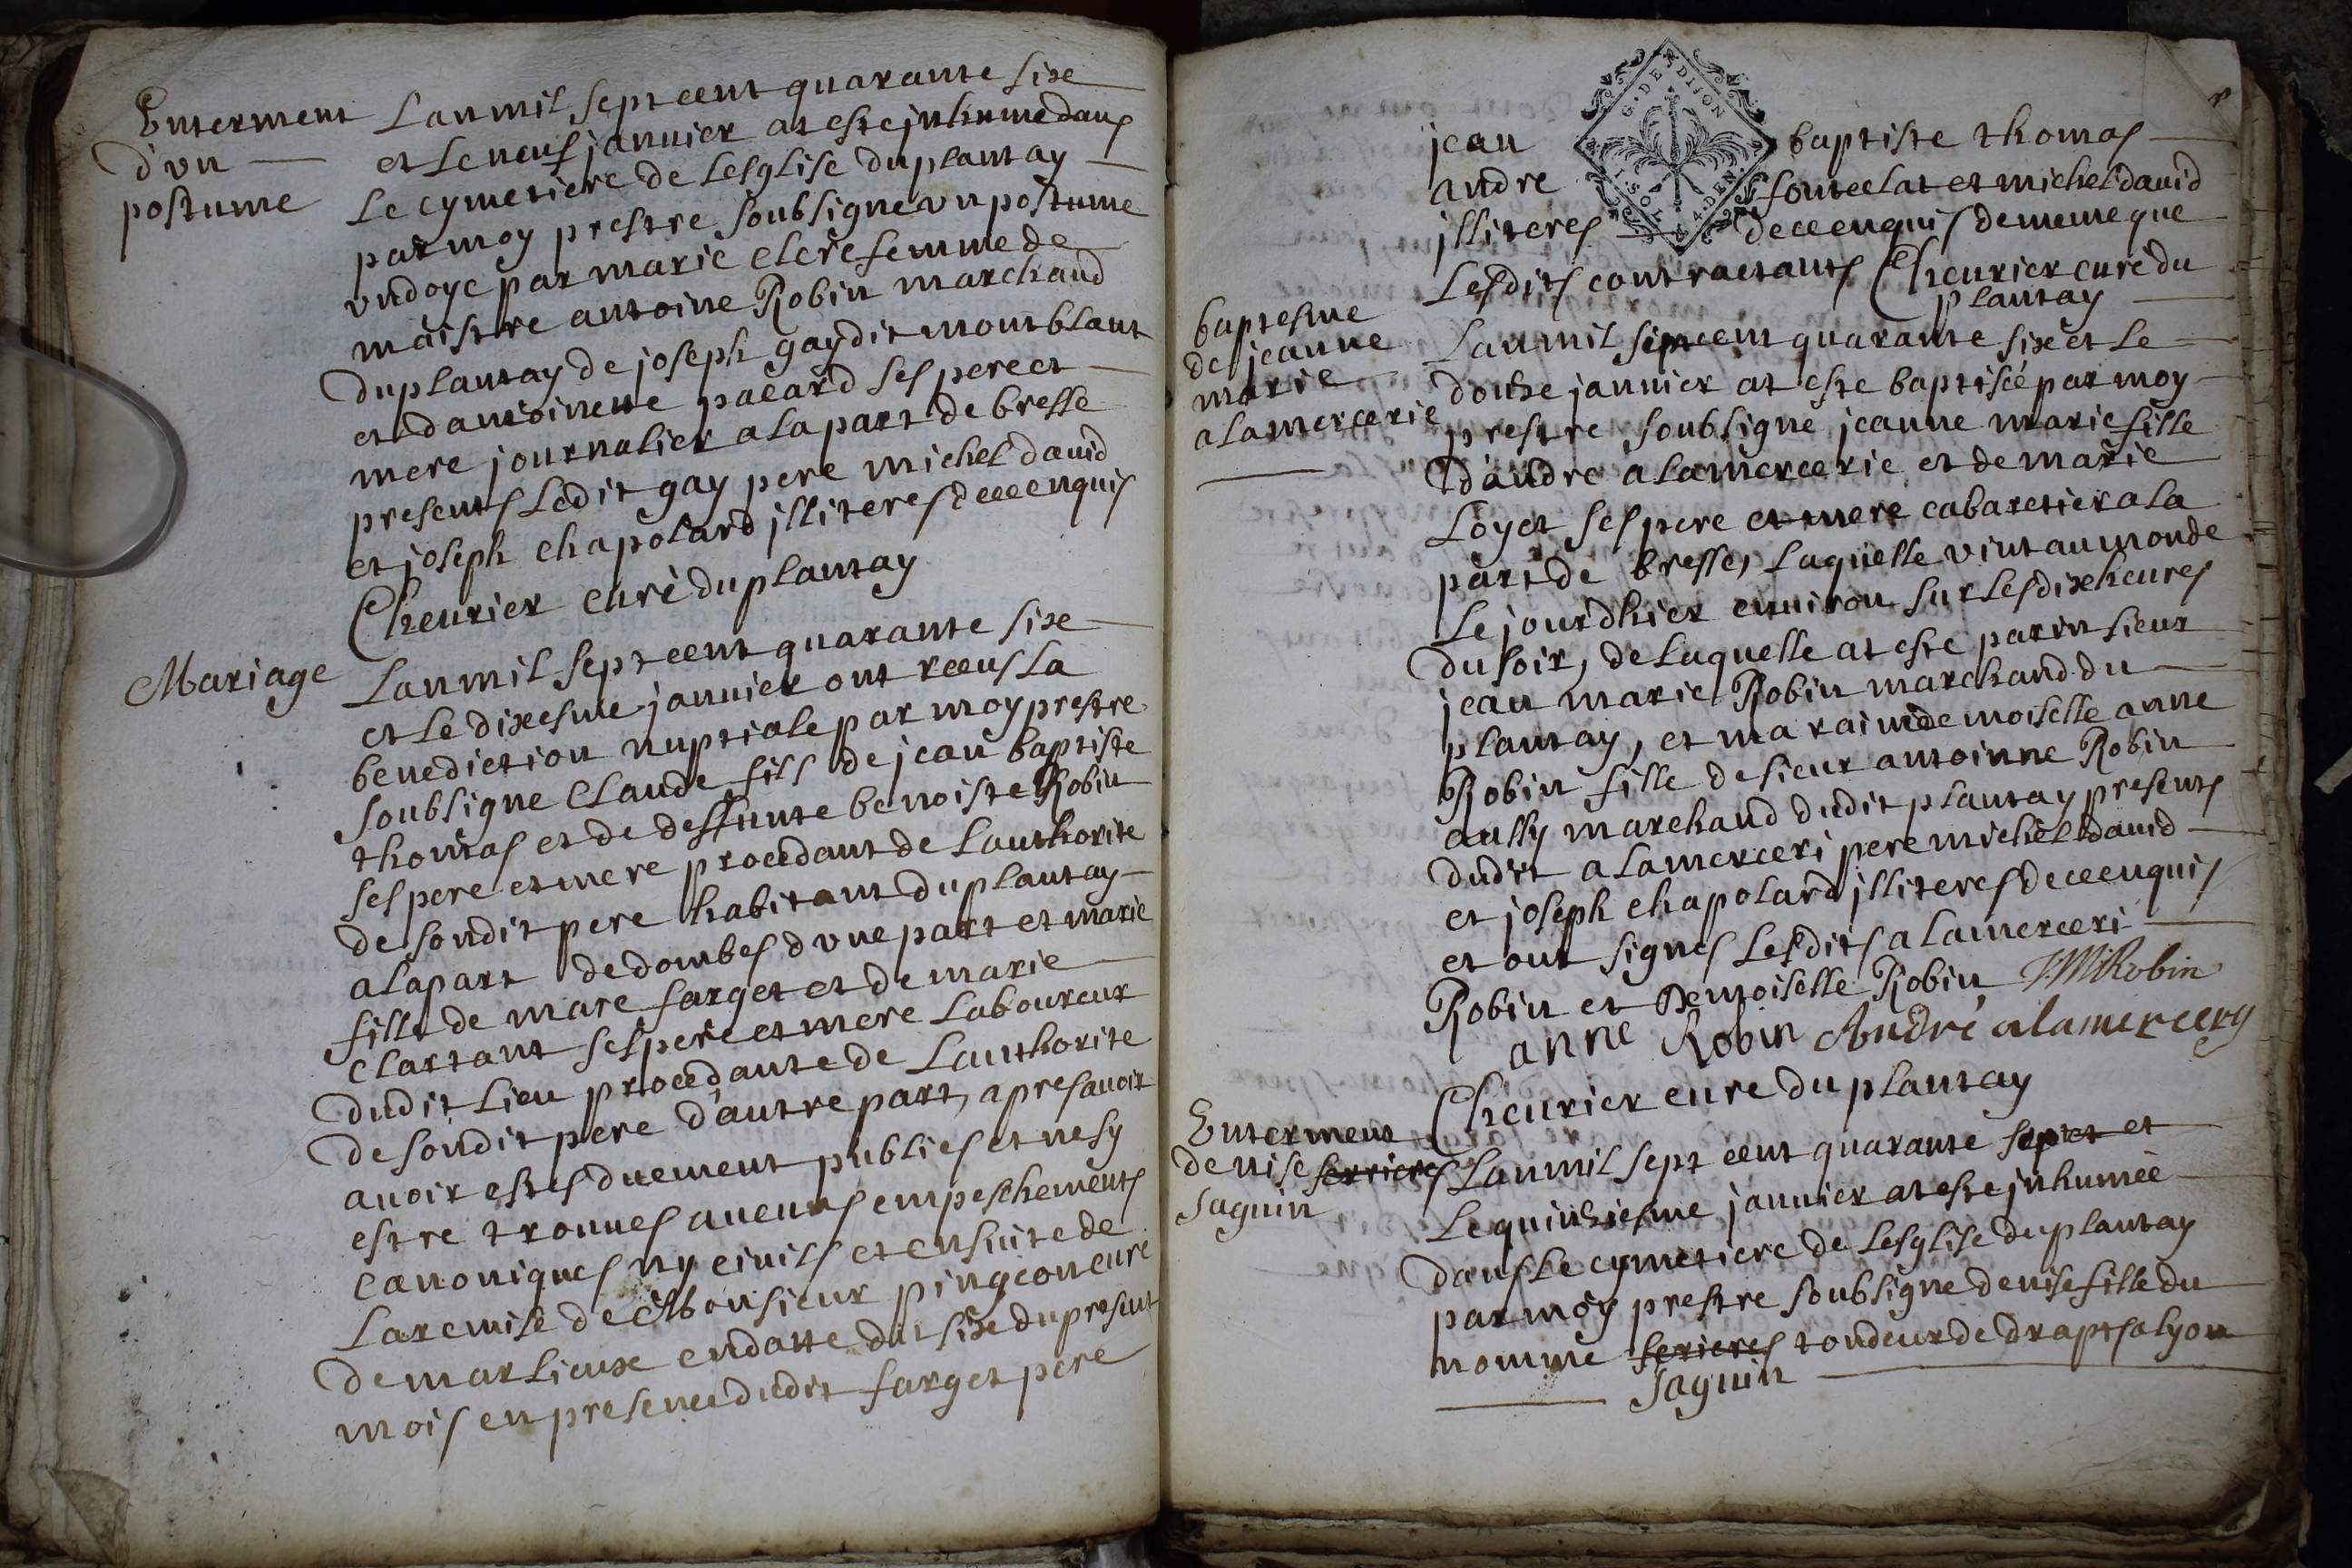 Enterment
d'vn
postume
Lan mil sept cent quarante sixe
et le neuf januier at este jnhumé dans
le cymetiere de lesglise du plantay
par moy prestre soubsigne vn postume
vndoyé par marie clere femme de
maistre antoine Robin marchand
du plantay de joseph gay dit montblant
et dantoinette pacard ses pere et
mere journalier a la part de bresse
presents ledit gay pere michel dauid
et joseph chapolard jlliteres de ce enquis
Cheurier curé du plantay
Mariage
Lan mil sept cent quarante sixe
et le dixesme januier ont receus la
benediction nuptiale par moy prestre
soubsigne claude fils de jean baptiste
thomas et de deffunte benoiste Robin
ses pere et mere procedant de lauthorite
de sondit pere habitant du plantay
a la part de dombes dvne part et marie
fille de marc farget et de marie
clartant ses pere et mere laboureur
dudit lieu procedante de lauthorite
de sondit pere d'autre part, apres auoir
auoir estes duement publies et ne sy
estre trouues aucuns empeschements
canoniques ny ciuils et ensuite de
la remise de Monsieur pingeon curé
de marlieuxe en datte du sixe du present
mois en presence dudit farget pere
jean baptiste thomas
andre fonteelat et michel dauid
jlliteres de ce enquis de meme que
lesdits contractants Cheurier curé du
plantay
baptesme
de jeanne
marie
alamercerie
Lan mil sept cent quarante sixe et le
douze januier at este baptisée par moy
prestre soubsigne jeanne marie fille
d'andre alamercerie et de marie
Loyet ses pere et mere cabaretier a la
part de bresse, laquelle vint au monde
le jourdhier enuiron sur les dixe heures
du soir, de laquelle at este parin sieur
jean marie Robin marchand du
plantay, et maraine demoiselle anne
Robin fille de sieur antoinne Robin
aussy marchand dudit plantay presents
dudit alamerceri pere michel dauid
et joseph chapolard jlliteres de ce enquis
et ont signes lesdits alamerceri
Robin et Demoiselle Robin JMRobin
anne Robin André alamercery
Cheurier cure du plantay
Enterment
denise ferrieres
saguin
Lan mil sept cent quarante septet et
le quinziesme januier at este jnhumée
dans le cymetiere de lesglise du plantay
par moy prestre soubsigne denise fille du
nomme ferieres tondeur de drapts a lyon
saguin
G. DE DIJON
1 SOL. 4. DEN.